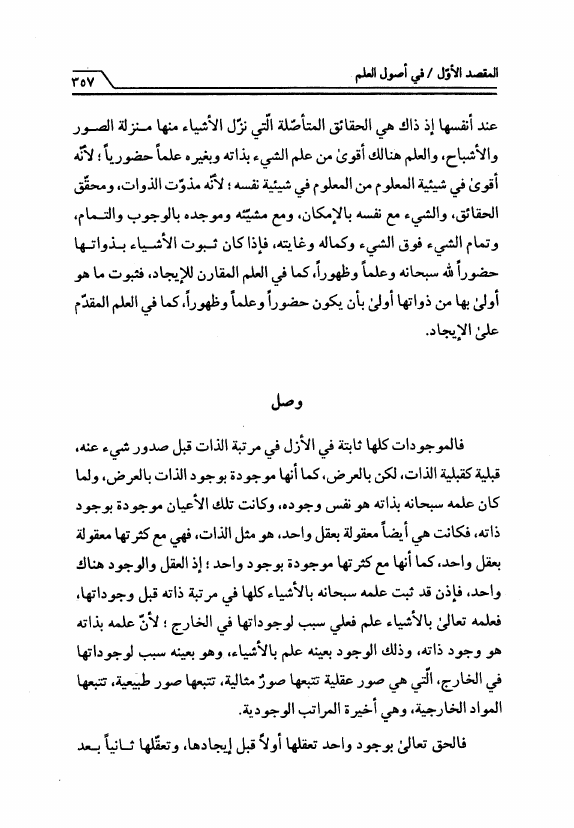 المقصد الأوّل / في أصول العلم
٣٥٧
عند أنفسها إذ ذاك هي الحقائق المتأصّلة الّتي نزّل الأشياء منها مـنزلة الصـور
والأشباح، والعلم هنالك أقوىٰ من علم الشيء بذاته وبغيره علماً حضورياً ؛ لأنّه
أقوىٰ في شيئية المعلوم من المعلوم في شيئية نفسه ؛ لأنّه مذوّت الذوات، ومحقّق
الحقائق، والشيء مع نفسه بالإمكان، ومع مشيّئه وموجده بالوجوب والتـمام،
وتمام الشيء فوق الشيء وكماله وغايته، فإذا كان ثـبوت الأشـياء بـذواتـها
حضوراً لله سبحانه وعلماً وظهوراً، كما في العلم المقارن للإيجاد، فثبوت ما هو
أولىٰ بها من ذواتها أولىٰ بأن يكون حضوراً وعلماً وظهوراً، كما في العلم المقدّم
علىٰ الإيجاد.
وصل
فالموجودات كلها ثابتة في الأزل في مرتبة الذات قبل صدور شيء عنه،
قبلية كقبلية الذات، لكن بالعرض، كما أنها موجودة بوجود الذات بالعرض، ولما
كان علمه سبحانه بذاته هو نفس وجوده، وكانت تلك الأعيان موجودة بوجود
ذاته، فكانت هي أيضاً معقولة بعقل واحد، هو مثل الذات، فهي مع كثرتها معقولة
بعقل واحد، كما أنها مع كثرتها موجودة بوجود واحد ؛ إذ العقل والوجود هناك
واحد، فإذن قد ثبت علمه سبحانه بالأشياء كلها في مرتبة ذاته قبل وجوداتها،
فعلمه تعالىٰ بالأشياء علم فعلي سبب لوجوداتها في الخارج ؛ لأنّ علمه بذاته
هو وجود ذاته، وذلك الوجود بعينه علم بالأشياء، وهو بعينه سبب لوجوداتها
في الخارج، الّتي هي صور عقلية تتبعها صورٌ مثالية، تتبعها صور طبيعية، تتبعها
المواد الخارجية، وهي أخيرة المراتب الوجودية.
فالحق تعالىٰ بوجود واحد تعقلها أولاً قبل إيجادها، وتعقّلها ثـانياً بـعد